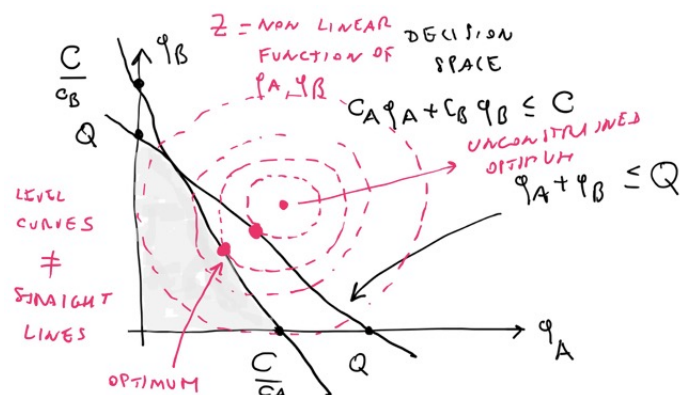 Z = NON LINEAR
FUNCTION OF
φA, φB
DECISION
SPACE
C/cB
φB
Q
CAφA + CBφB ≤ C
UNCONSTRAINED
OPTIMUM
φA + φB ≤ Q
LEVEL
CURVES
≠
STRAIGHT
LINES
OPTIMUM
C/cA
Q
φA